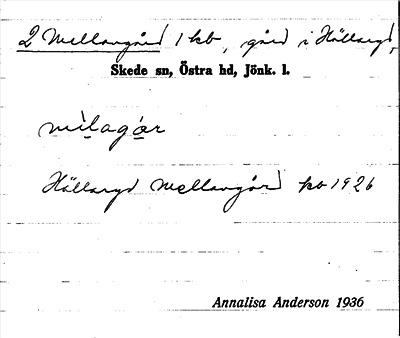 2 Mellangård 1 kb, gård i Hällaryd,
Skede sn, Östra hd, Jönk. l.
mìlagár
Hällaryd Mellangård kb 1926
Annalisa Anderson 1936